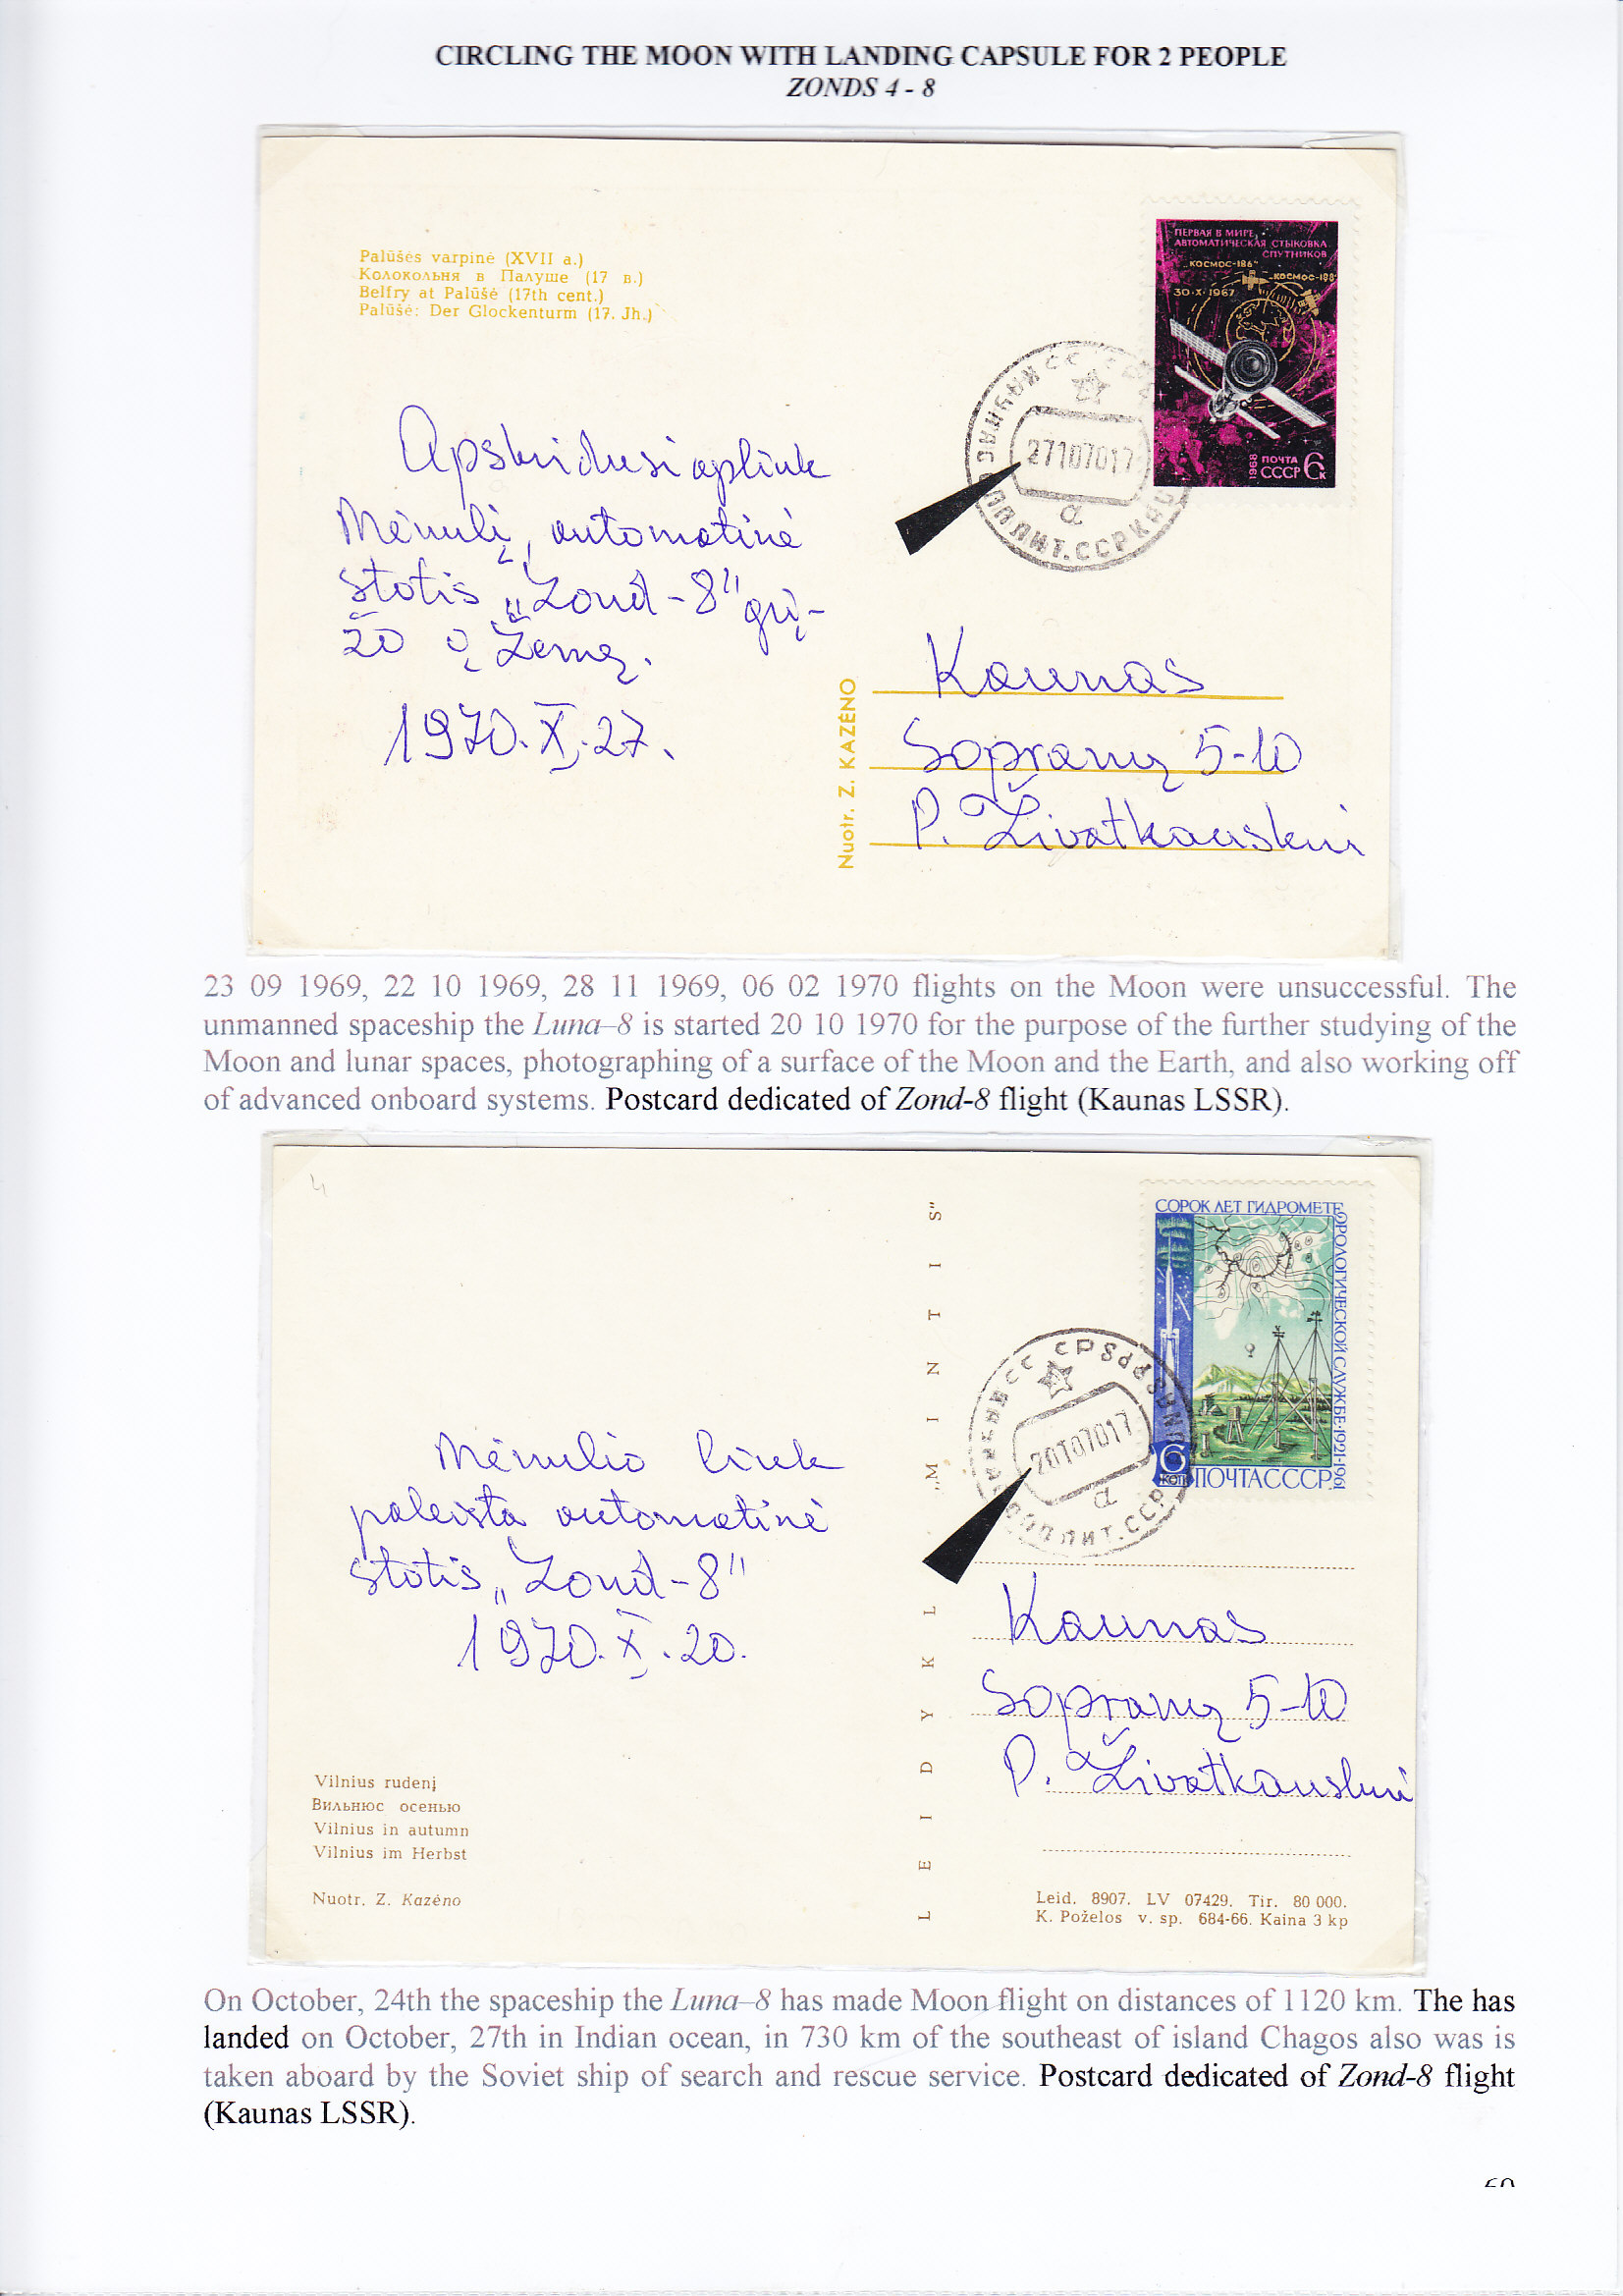 CIRCLING THE MOON WITH LANDING CAPSULE FOR 2 PEOPLE
ZONDS 4 - 8
Palūšės varpinė (XVII a.)
Колокольня в Палуше (17 в.)
Belfry at Palūšė (17th cent.)
Palūšė: Der Glockenturm (17. Jh.)
ПЕРВАЯ В МИРЕ
АВТОМАТИЧЕСКАЯ СТЫКОВКА
СПУТНИКОВ
„КОСМОС-186"
„КОСМОС-188"
30·X·1967
1968 ПОЧТА
СССР 6к
КАУНАС
27107017
а
ЛИТ.ССР
Apskridusi aplink
Mėnulį, automatinė
stotis „Zond-8" grį-
žo į Žemę.
1970.X.27.
Nuotr. Z. KAZĖNO
Kaunas
Sopranų 5-10
P. Živatkauskui
23 09 1969, 22 10 1969, 28 11 1969, 06 02 1970 flights on the Moon were unsuccessful. The
unmanned spaceship the Luna–8 is started 20 10 1970 for the purpose of the further studying of the
Moon and lunar spaces, photographing of a surface of the Moon and the Earth, and also working off
of advanced onboard systems. Postcard dedicated of Zond-8 flight (Kaunas LSSR).
4
СОРОК ЛЕТ ГИДРОМЕТЕОРОЛОГИЧЕСКОЙ СЛУЖБЕ·1921-1961
6
КОП
ПОЧТА СССР
20107017
а
ЛИТ.ССР
LEIDYKLA „MINTIS"
Mėnulio link
paleista automatinė
stotis „Zond-8"
1970.X.20.
Kaunas
Sopranų 5-10
P. Živatkauskui
Vilnius rudenį
Вильнюс осенью
Vilnius in autumn
Vilnius im Herbst
Nuotr. Z. Kazėno
Leid. 8907. LV 07429. Tir. 80 000.
K. Poželos v. sp. 684-66. Kaina 3 kp
On October, 24th the spaceship the Luna–8 has made Moon flight on distances of 1120 km. The has
landed on October, 27th in Indian ocean, in 730 km of the southeast of island Chagos also was is
taken aboard by the Soviet ship of search and rescue service. Postcard dedicated of Zond-8 flight
(Kaunas LSSR).